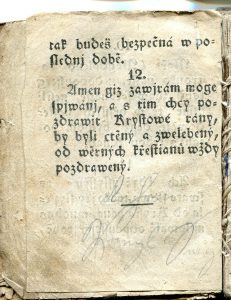 tak budeš bezpečná w po-
slednj době.
12.
Amen giž zawjrám moge
spjwánj, a s tjm chcy po-
zdrawit Krystowé rány,
by byli ctěný a zwelebený,
od wěrných křestianů wždy
pozdrawený.